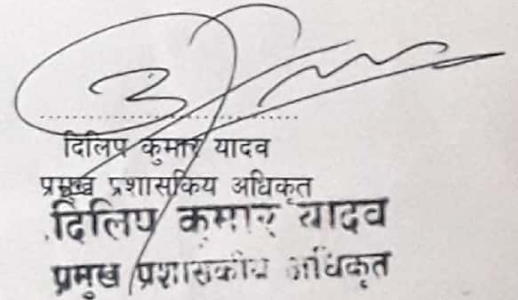 दिलिप कुमार यादव
प्रमुख प्रशासकिय अधिकृत
दिलिप कुमार यादव
प्रमुख प्रशासकीय अधिकृत